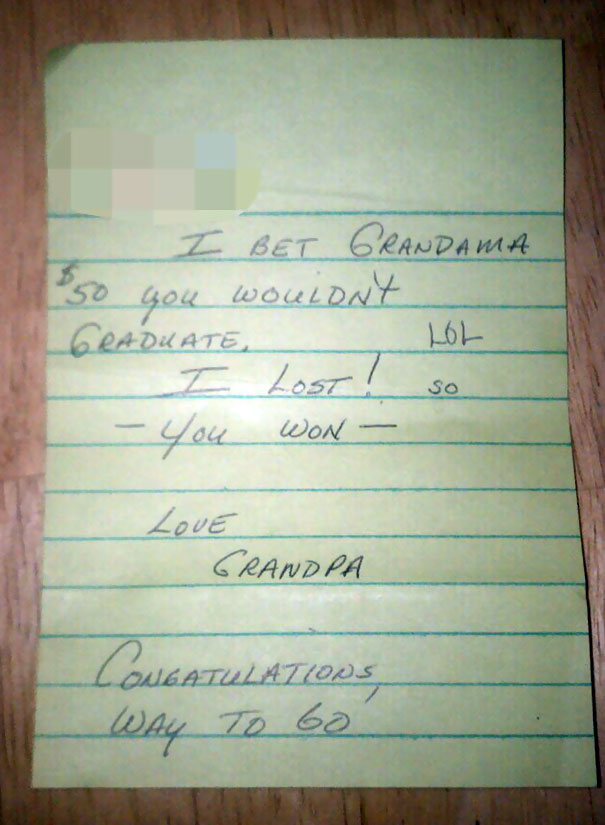 I BET GRANDAMA
$50 you WOULDN't
GRADUATE. LOL
I LOST! so
- You WON -
LOVE
GRANDPA
CONGATULATIONS,
WAY TO GO